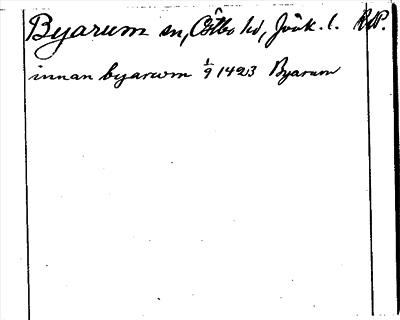 Byarum sn, Östbo hd, Jönk. l. RAP.
innan byarwm 1/9 1423 Byarum